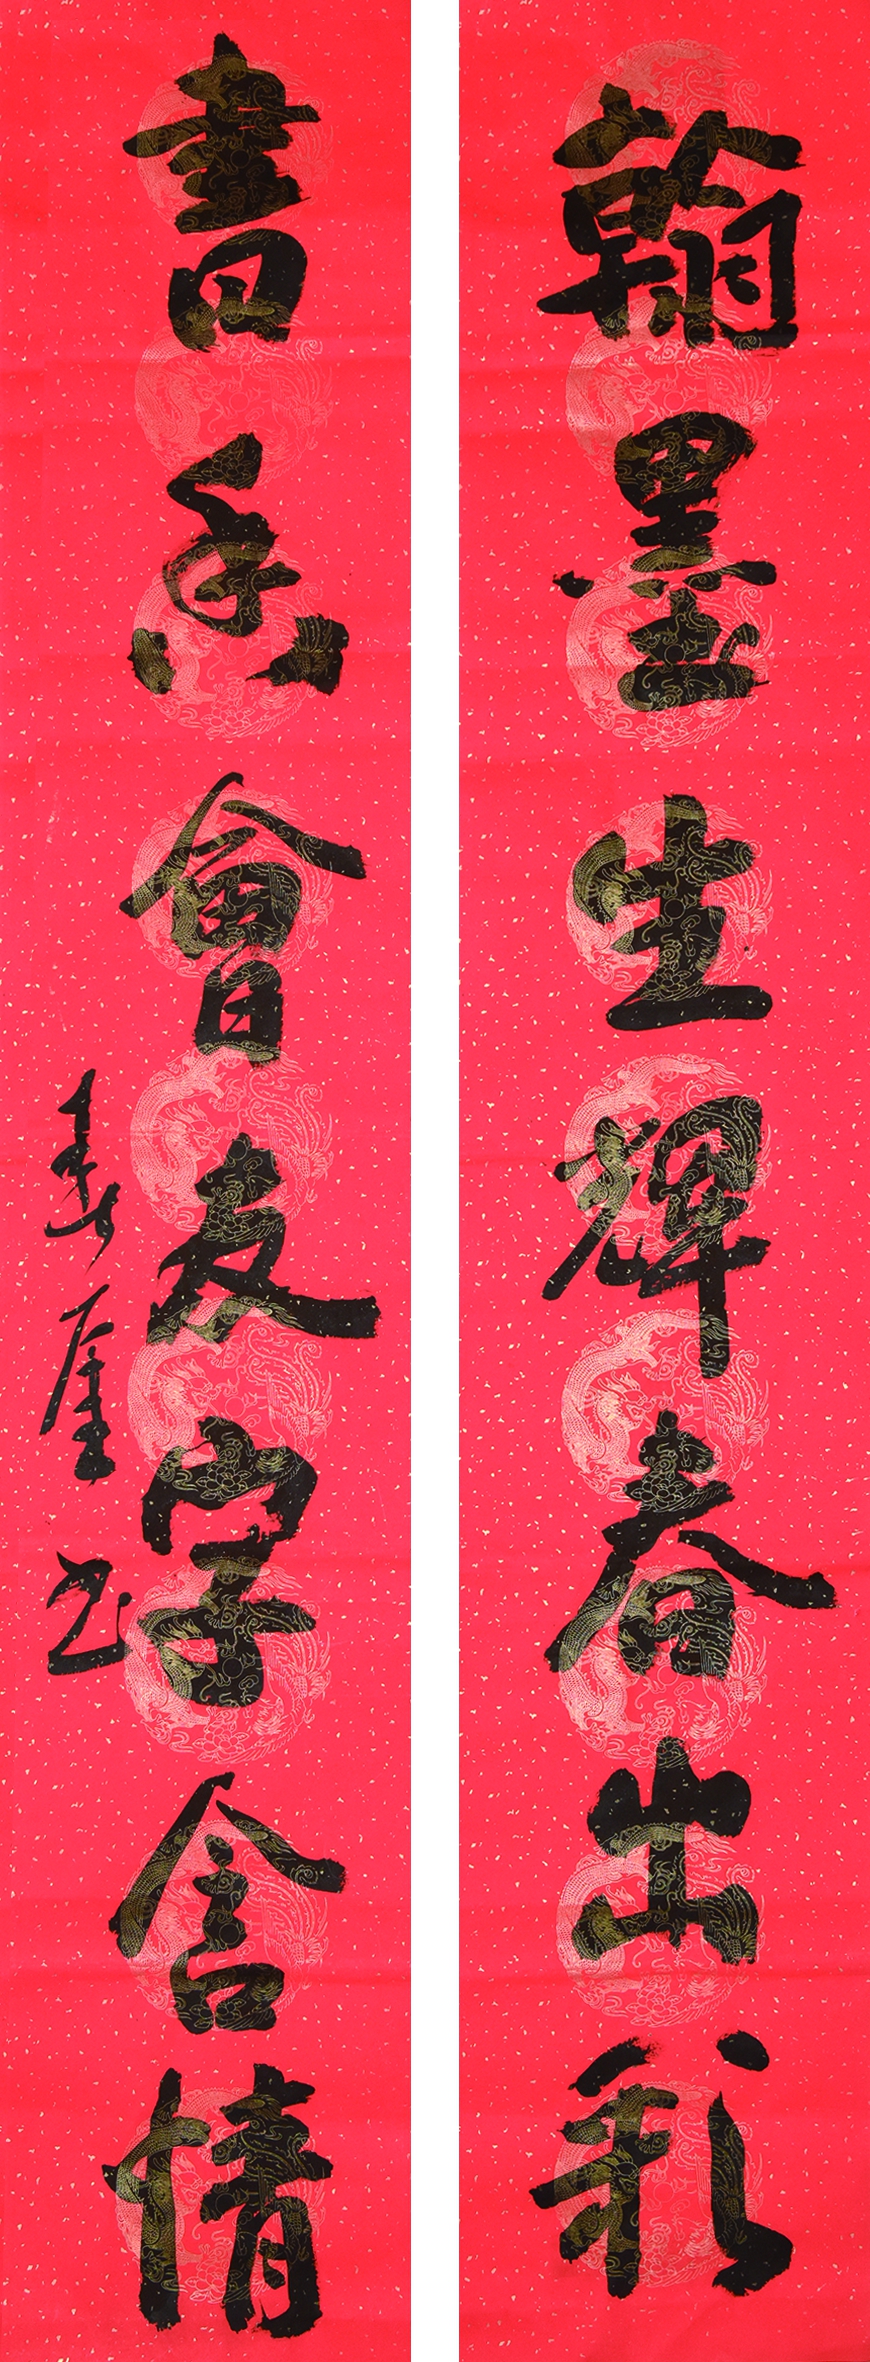 翰墨生輝春出彩
書香會友字含情
寿厓书